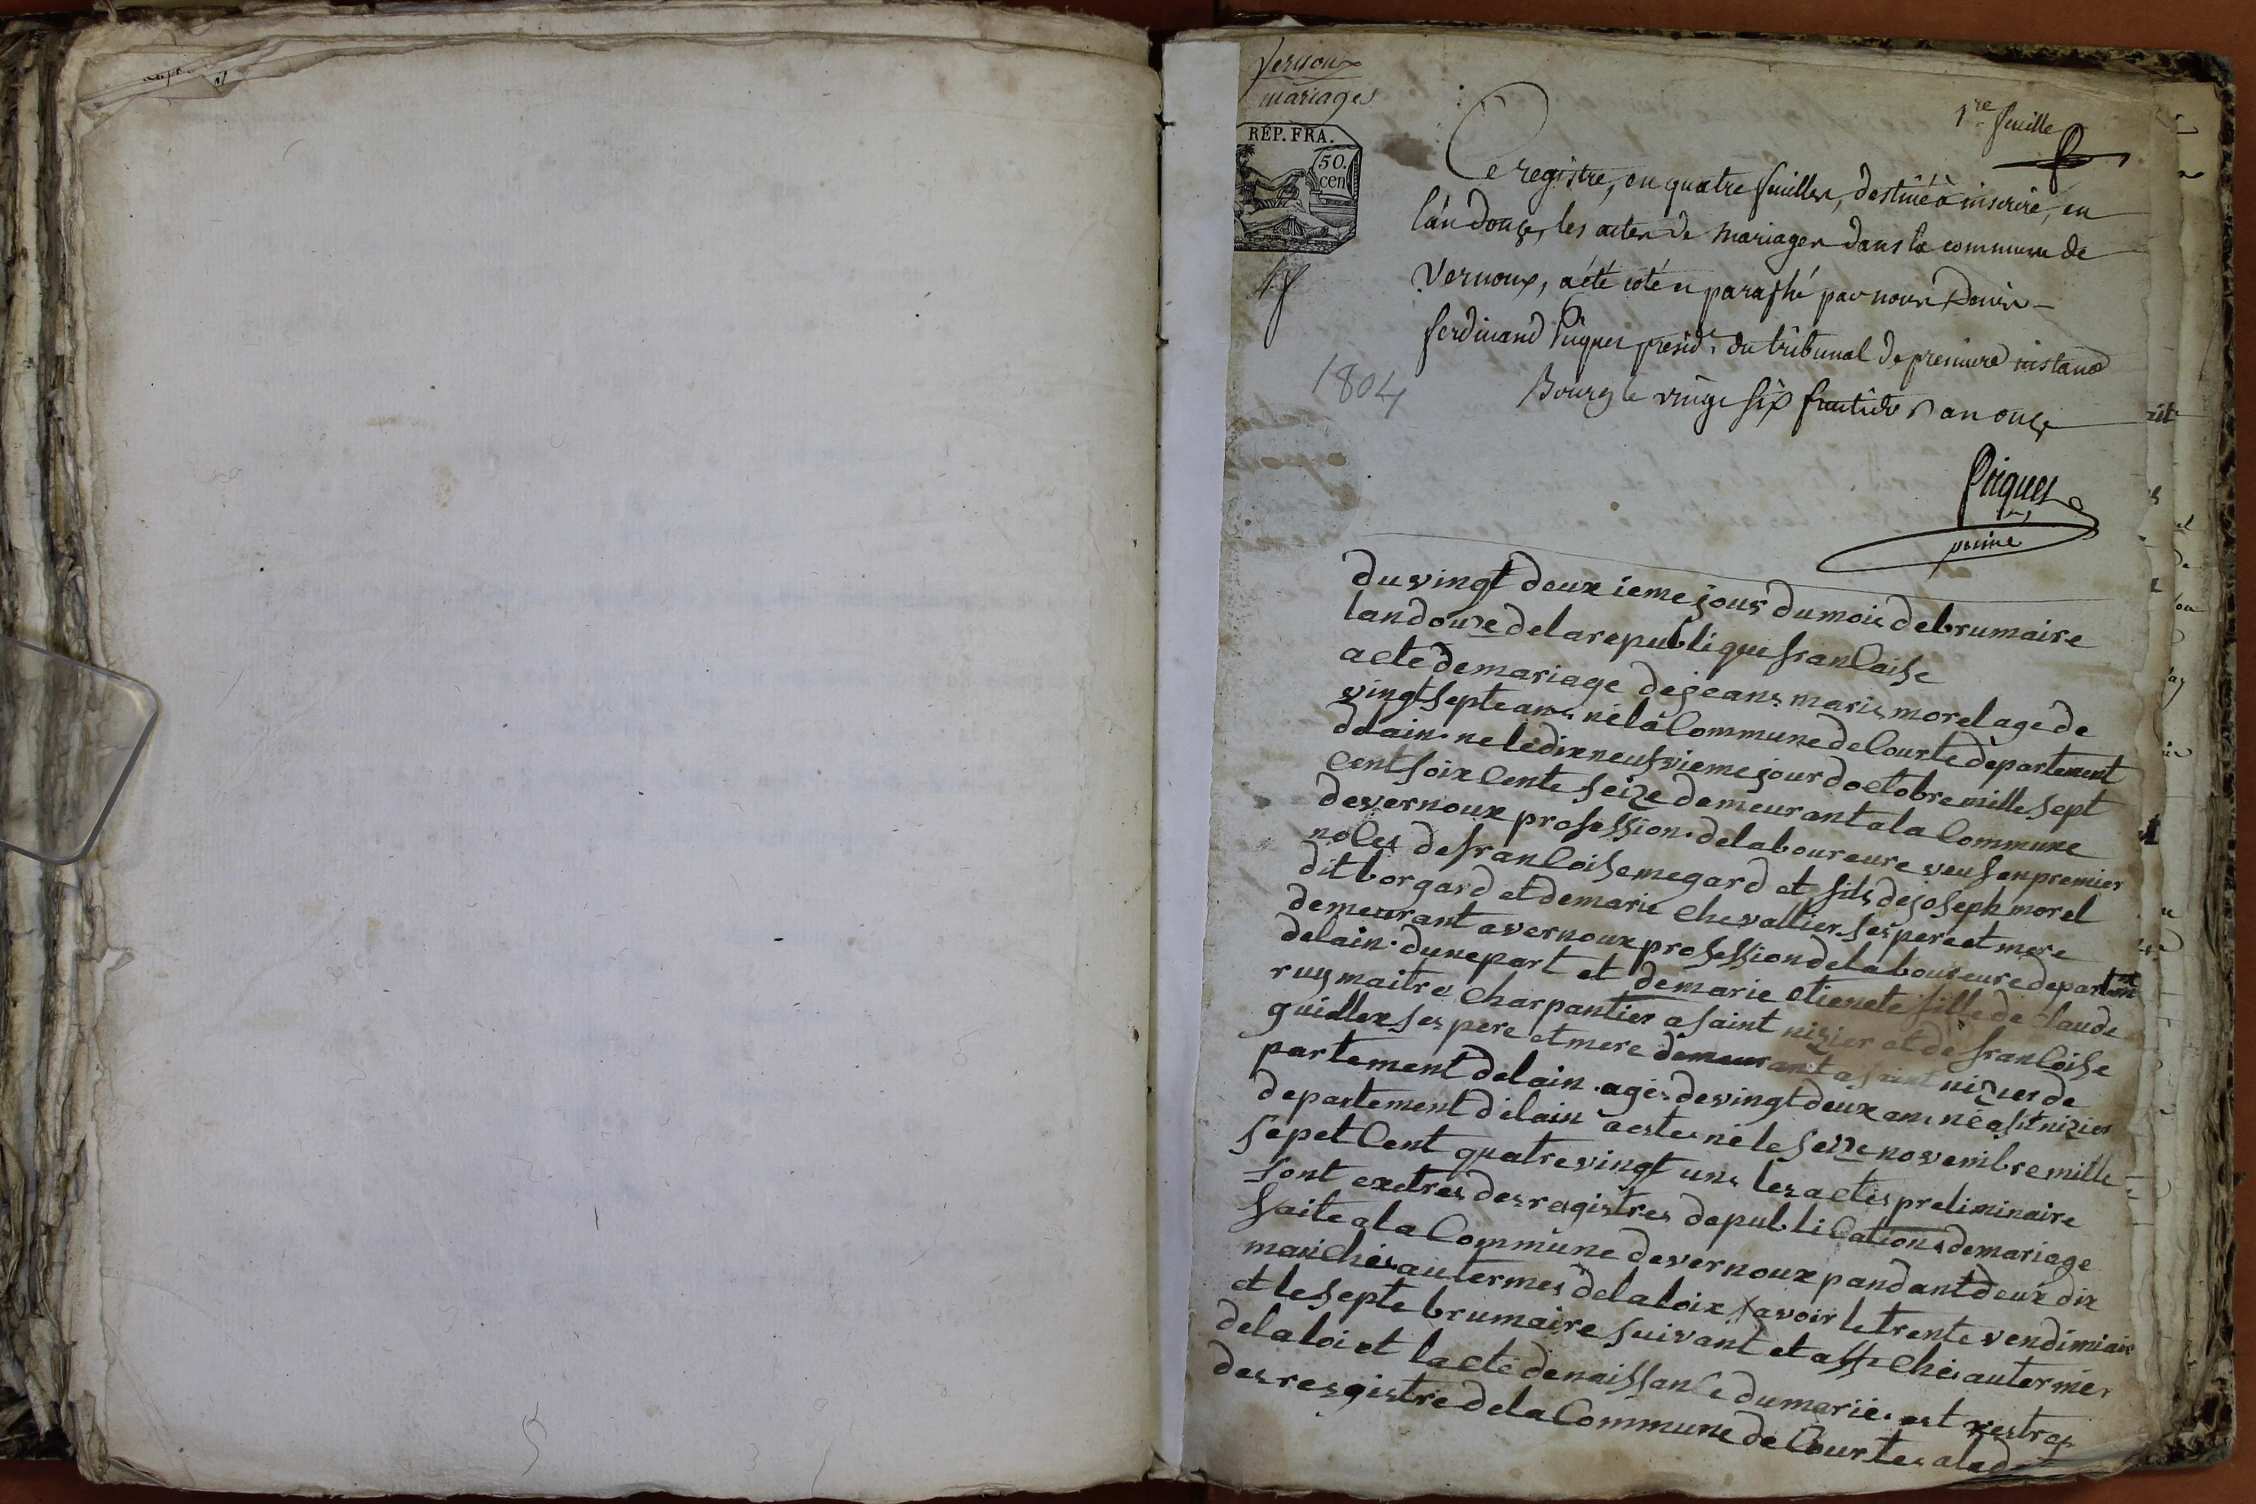 Vernoux
mariages
1re feuille
RÉP. FRA.
50.
cen
Ce registre, en quatre feuilles, destiné à inscrire, en
l'an douze, les actes de mariages dans la commune de
Vernoux, a été coté et paraphé par nous Denis
ferdinand Piquet présidt. du tribunal de premiere instance
Bourg le vingt six fructidor an onze
1804
Piquet
du vingt deux ieme jour du mois de brumaire
lan douze de la republique francaise
acte de mariage de jeans marie morel age de
vingt septe ans né la Commune de Courte département
delain. ne le dix neufvieme jour doctobre mille sept
Cent soix Cente seize demeurant a la Commune
de vernoux profession. de laboureure veuf en premier
noces de francoise megard et fils de joseph morel
dit borgard et de marie Chevallier ses pere et mere
demeurant a vernoux profession de laboureure departemt
delain. dune part et de marie etienete fille de Claude
ruy maitre Charpantier a saint nizier et de francoise
guillex ses pere et mere demeurant a saint nizier de
partement delain. agé de vingt deux ans né a st nizier
departement delain acte né le seize novembre mille
sepet Cent quatre vingt uns les actes preliminaire
sont extres des registres de publications de mariage
faite a la Commune de vernoux pandant deux dix
manches au termes de la loix savoir le trente vendimiaire
et le septe brumaire suivant et affiches au termes
de la loi et lacte de naissance du marie. est xestres
des resgistre de la Commune de Courtes a la d